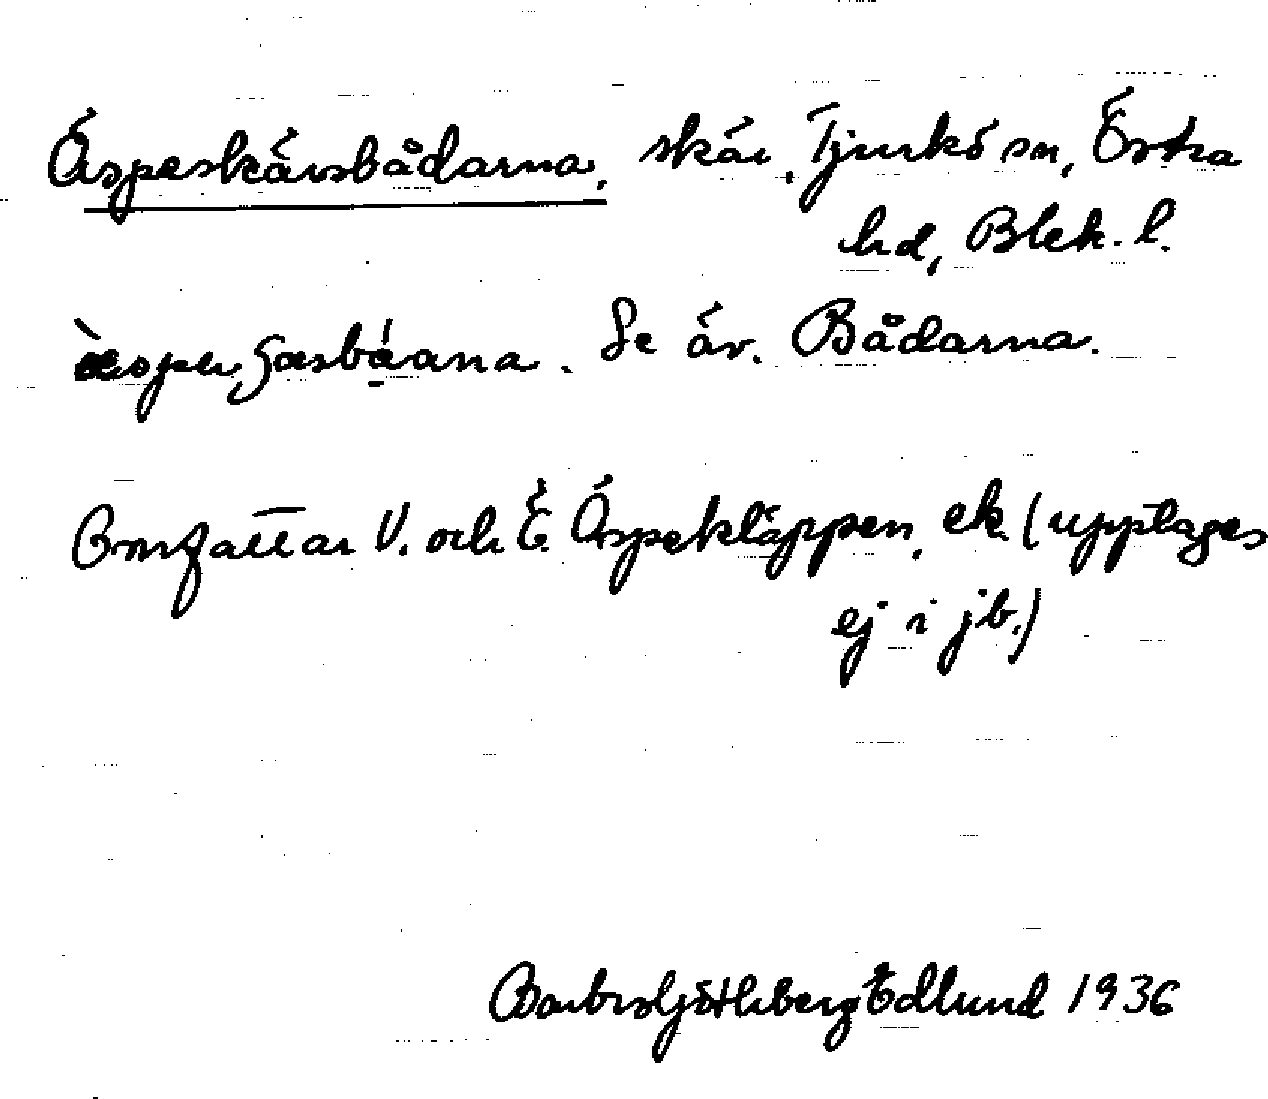 Äspeskärsbådarna, skär, Tjurkö sn, Östra
hd, Blek. l.
Se äv. Bådarna.
Omfattar V. och Ö. Äspekläppen, ek. (upptages
ej i jb.)
Götlberg Edlund 1936